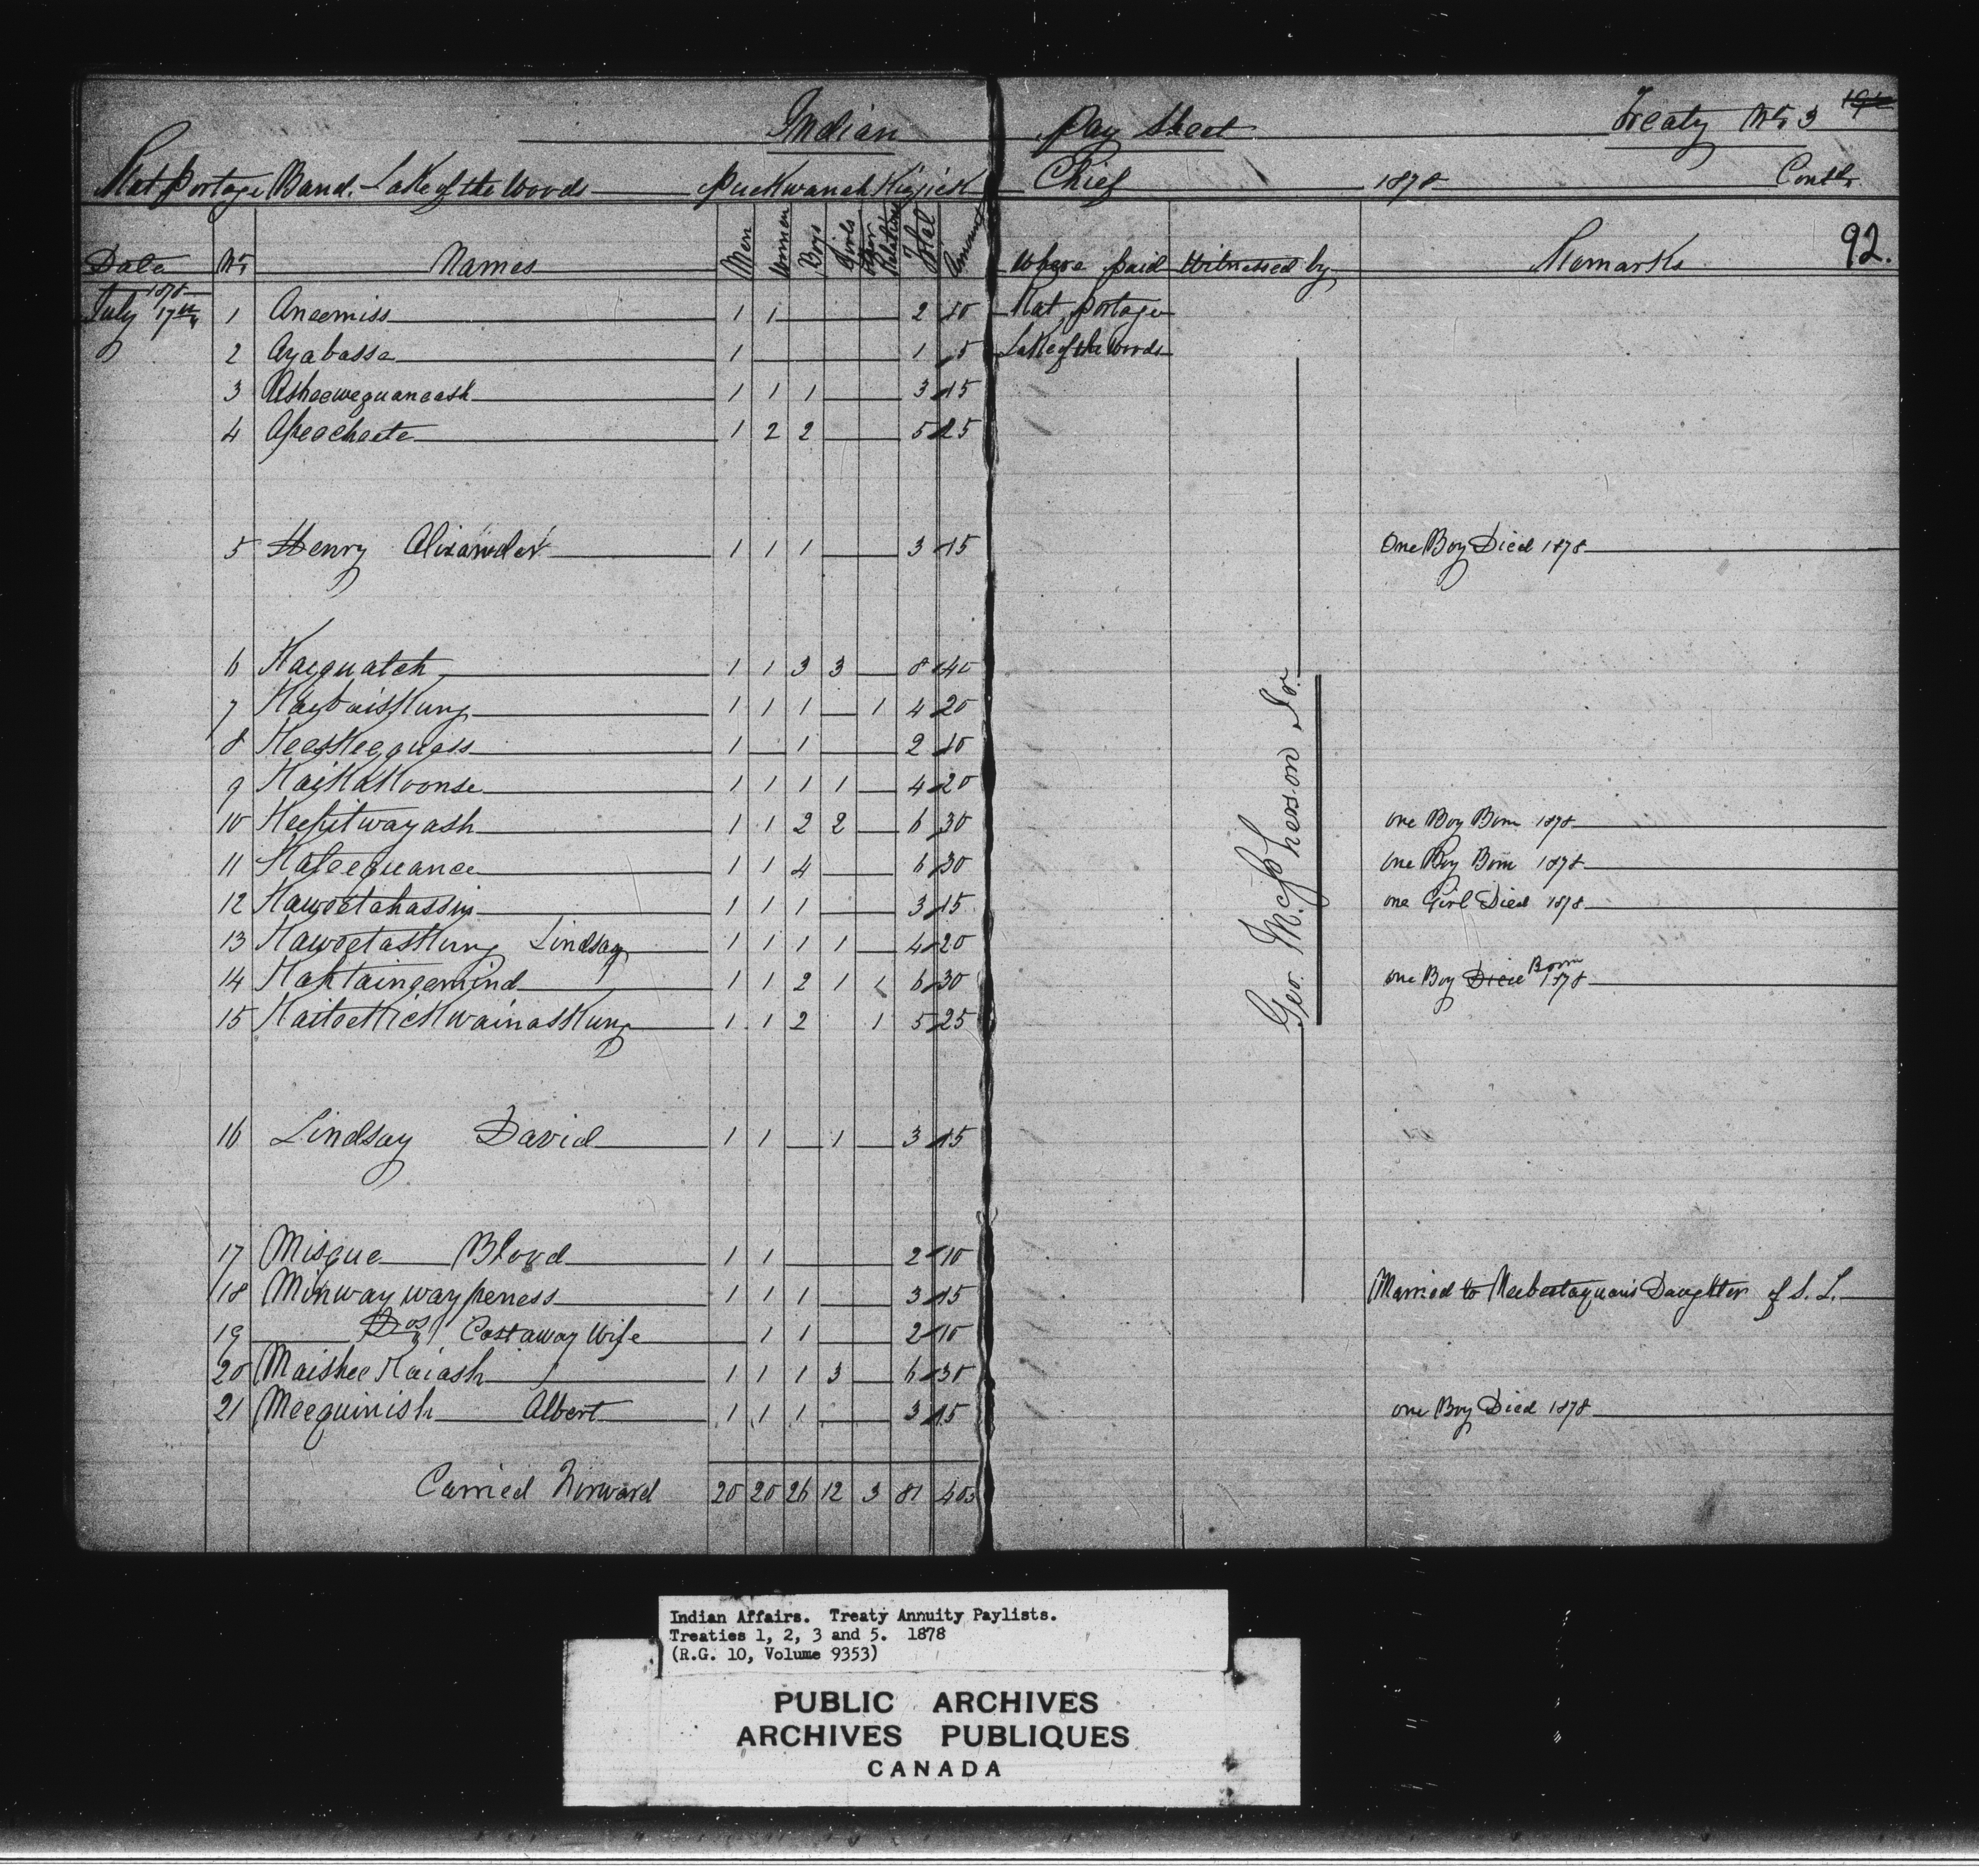 Indian Pay Sheet Treaty No 3
Rat Portage Band. Lake of the Woods Puckwanah Kigjick Chief 1878 Contd.
Date No Names Men Women Boys Girls Other Relations Total Amount Where paid Witnessed by Remarks 92.
1878 July 17th 1 Aneemiss 1 1 2 10 Rat Portage
2 Ayabassa 1 1 5 Lake of the Woods
3 Asheeweguaneash 1 1 1 3 15
4 Apeecheete 1 2 2 5 25
5 Henry Alixander 1 1 1 3 15 One Boy Died 1878
6 Kaequatch 1 1 3 3 8 40
7 Kaybaiskung 1 1 1 1 4 20
8 Keeskeequess 1 1 2 10
9 Kaykakoonse 1 1 1 1 4 20
10 Keepitwayash 1 1 2 2 6 30 one Boy Born 1878
11 Kateequance 1 1 4 6 30 one Boy Born 1878
12 Kaweetahassin 1 1 1 3 15 one Girl Died 1878
13 Kaweetaskung Lindsay 1 1 1 1 4 20
14 Kahtaingemind 1 1 2 1 1 6 30 one Boy Died Born 1878
15 Kaitoekickwainaskung 1 1 2 1 5 25
Geo. McPherson Sr.
16 Lindsay David 1 1 1 3 15
17 Misque Blood 1 1 2 10
18 Minwaywaypeness 1 1 1 3 15 Married to Neebestaquon's Daughter of S. L.
19 Do Castaway Wife 1 1 2 10
20 Maishee Kaiash 1 1 1 3 6 30
21 Meequinish Albert 1 1 1 3 15 one Boy Died 1878
Carried Forward 20 20 26 12 3 81 405
Indian Affairs. Treaty Annuity Paylists.
Treaties 1, 2, 3 and 5. 1878
(R.G. 10, Volume 9353)
PUBLIC ARCHIVES
ARCHIVES PUBLIQUES
CANADA